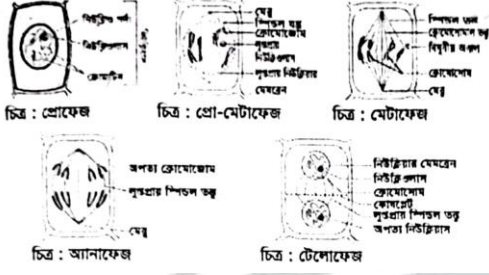 নিউক্লিওলাস
ক্রোমাটিন
চিত্র : প্রোফেজ
মেরু
স্পিন্ডল যন্ত্র
ক্রোমোজোম
লুপ্তপ্রায়
নিউক্লিওলাস
লুপ্তপ্রায় নিউক্লিয়ার
মেমব্রেন
চিত্র : প্রো-মেটাফেজ
স্পিন্ডল তন্তু
ক্রোমোসোমাল তন্তু
বিষুবীয় অঞ্চল
ক্রোমোসোম
মেরু
চিত্র : মেটাফেজ
অপত্য ক্রোমোজোম
লুপ্তপ্রায় স্পিন্ডল তন্তু
মেরু
চিত্র : অ্যানাফেজ
নিউক্লিয়ার মেমব্রেন
নিউক্লিওলাস
ক্রোমোসোম
কোষপ্লেট
লুপ্তপ্রায় স্পিন্ডল তন্তু
অপত্য নিউক্লিয়াস
চিত্র : টেলোফেজ